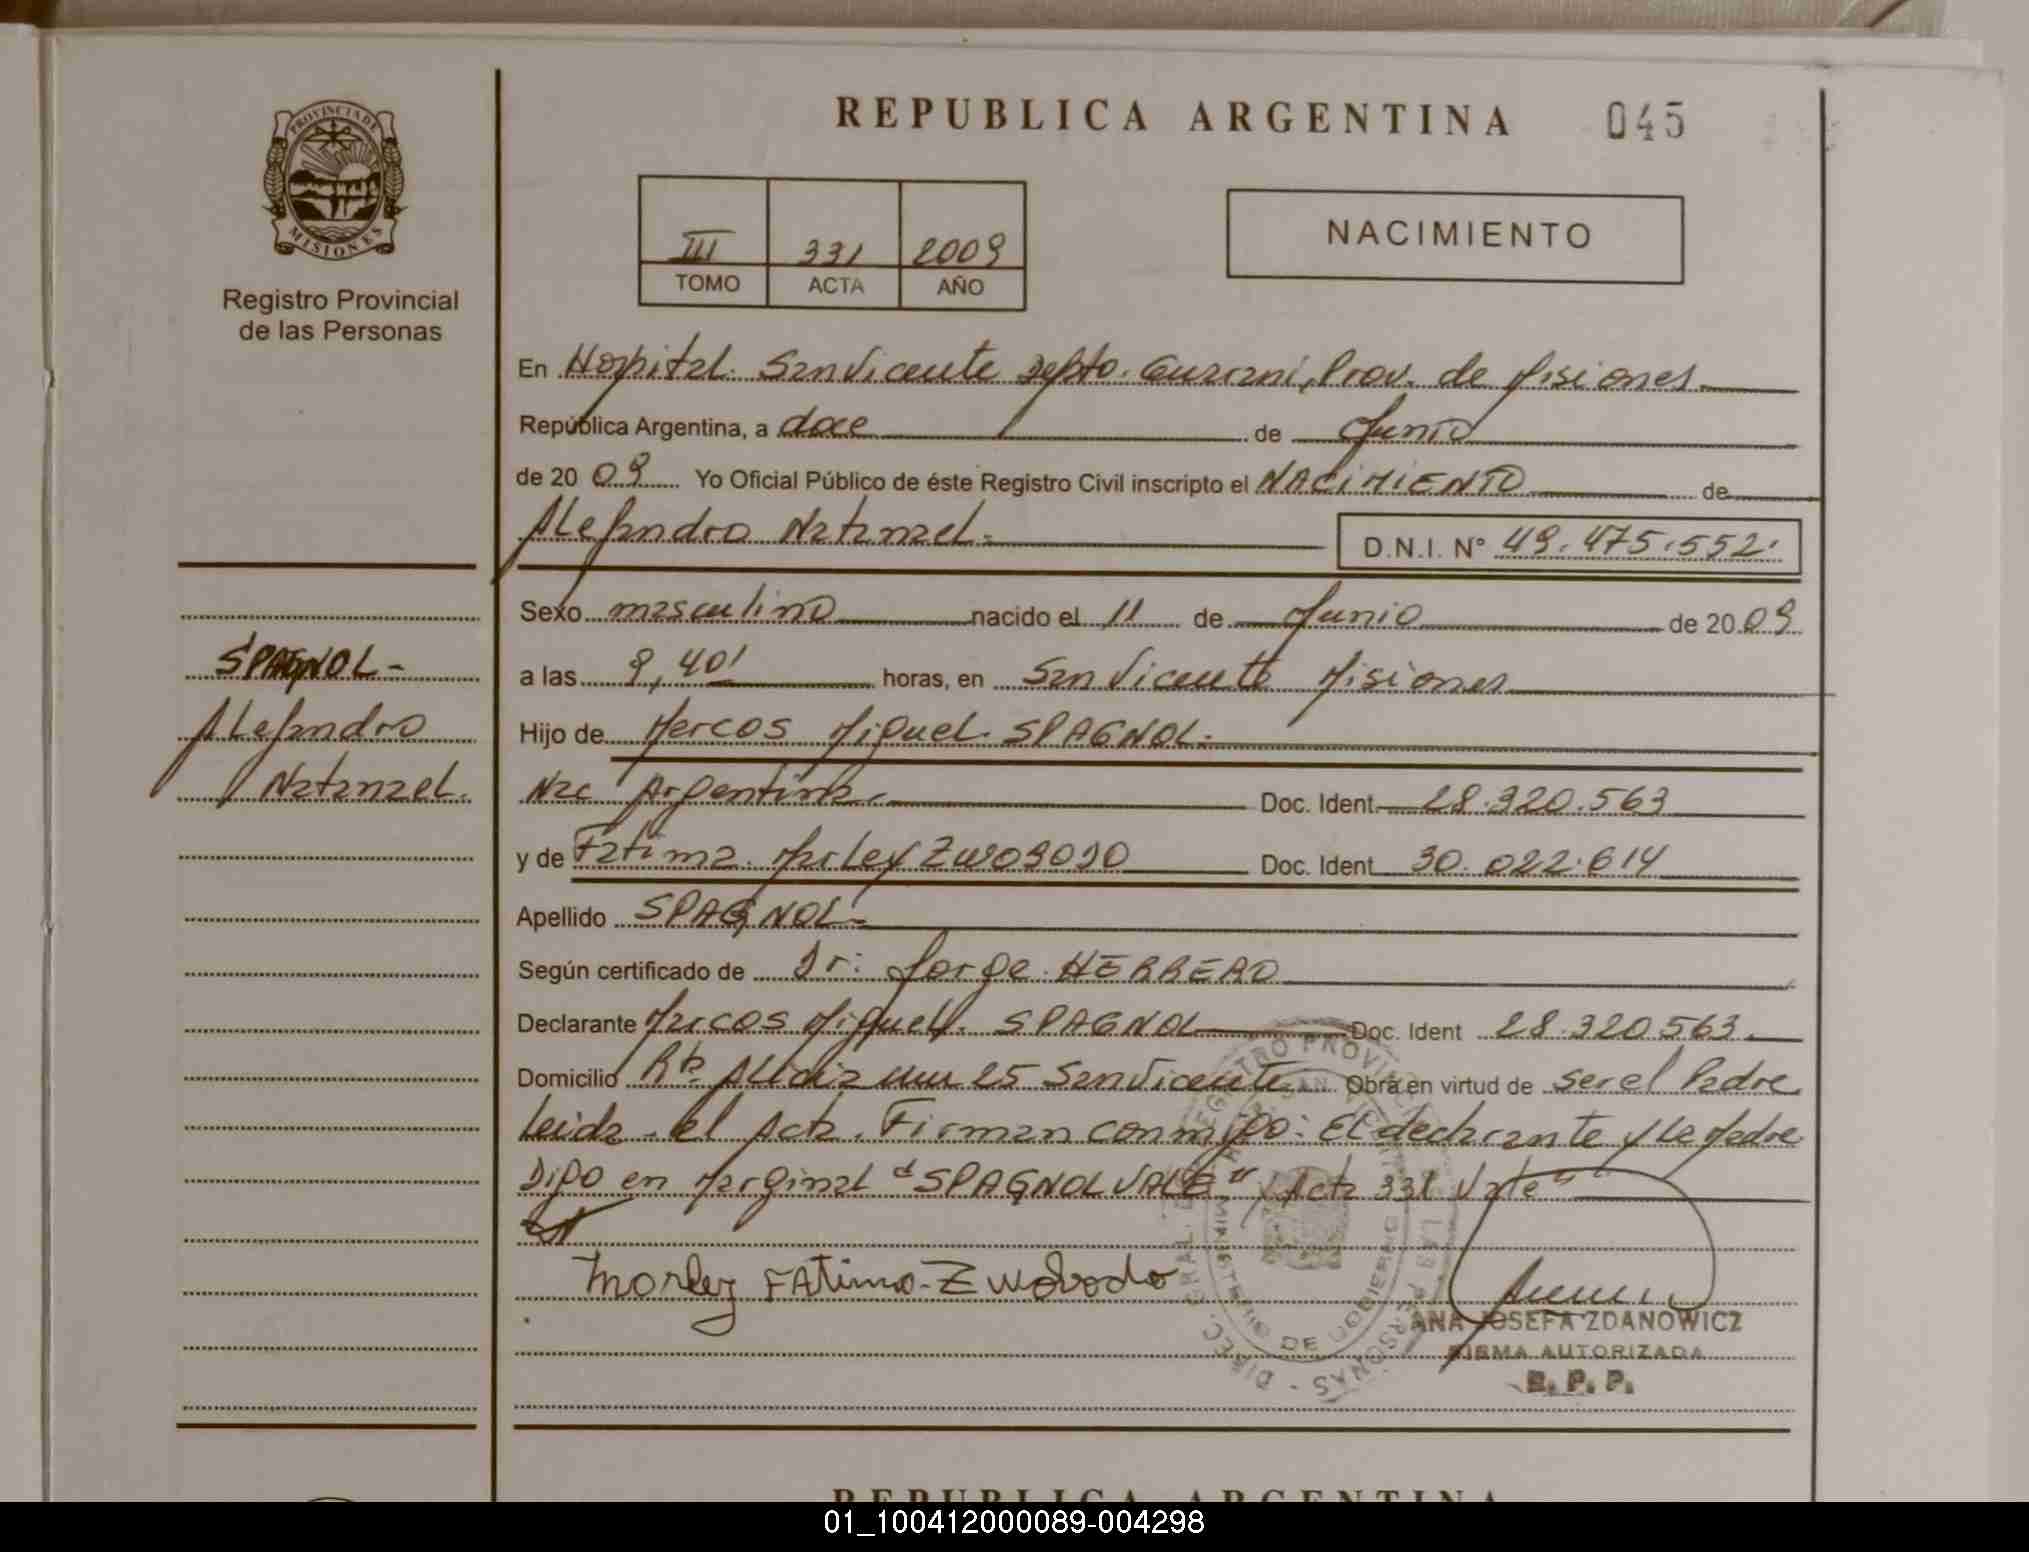 REPUBLICA ARGENTINA 045
PROVINCIA DE
MISIONES
Registro Provincial
de las Personas
III 331 2009
TOMO ACTA AÑO
NACIMIENTO
En Hospital San Vicente Depto. Guarani, Prov. de Misiones
República Argentina, a doce de Junio
de 2009 Yo Oficial Público de éste Registro Civil inscripto el NACIMIENTO de
Alejandro Natanael. D.N.I. N° 49.475.552.
Sexo masculino nacido el 11 de Junio de 2009
a las 9,40' horas, en San Vicente Misiones
Hijo de Marcos Miguel SPAGNOL.
Nac Argentina. Doc. Ident. 28.320.563
y de Fatima Marley ZWOBODO Doc. Ident 30.022.614
Apellido SPAGNOL.
Según certificado de Dr: Jorge HERRERO
Declarante Marcos Miguel SPAGNOL Doc. Ident 28.320.563
Domicilio Alicia km 25 San Vicente Obra en virtud de ser el Padre
Leida el Acta. Firman conmigo: El declarante y la Madre
Digo en Marginal "SPAGNOL VALE", Acta 331 Vale"
SPAGNOL-
Alejandro
Natanael.
Morley FAtima Zwobodo
DIREC. GRAL. DEL REGISTRO PROVINCIAL DE LAS PERSONAS
MINISTERIO DE GOBIERNO
ANA JOSEFA ZDANOWICZ
FIRMA AUTORIZADA
R. P. P.
REPUBLICA ARGENTINA
01_100412000089-004298